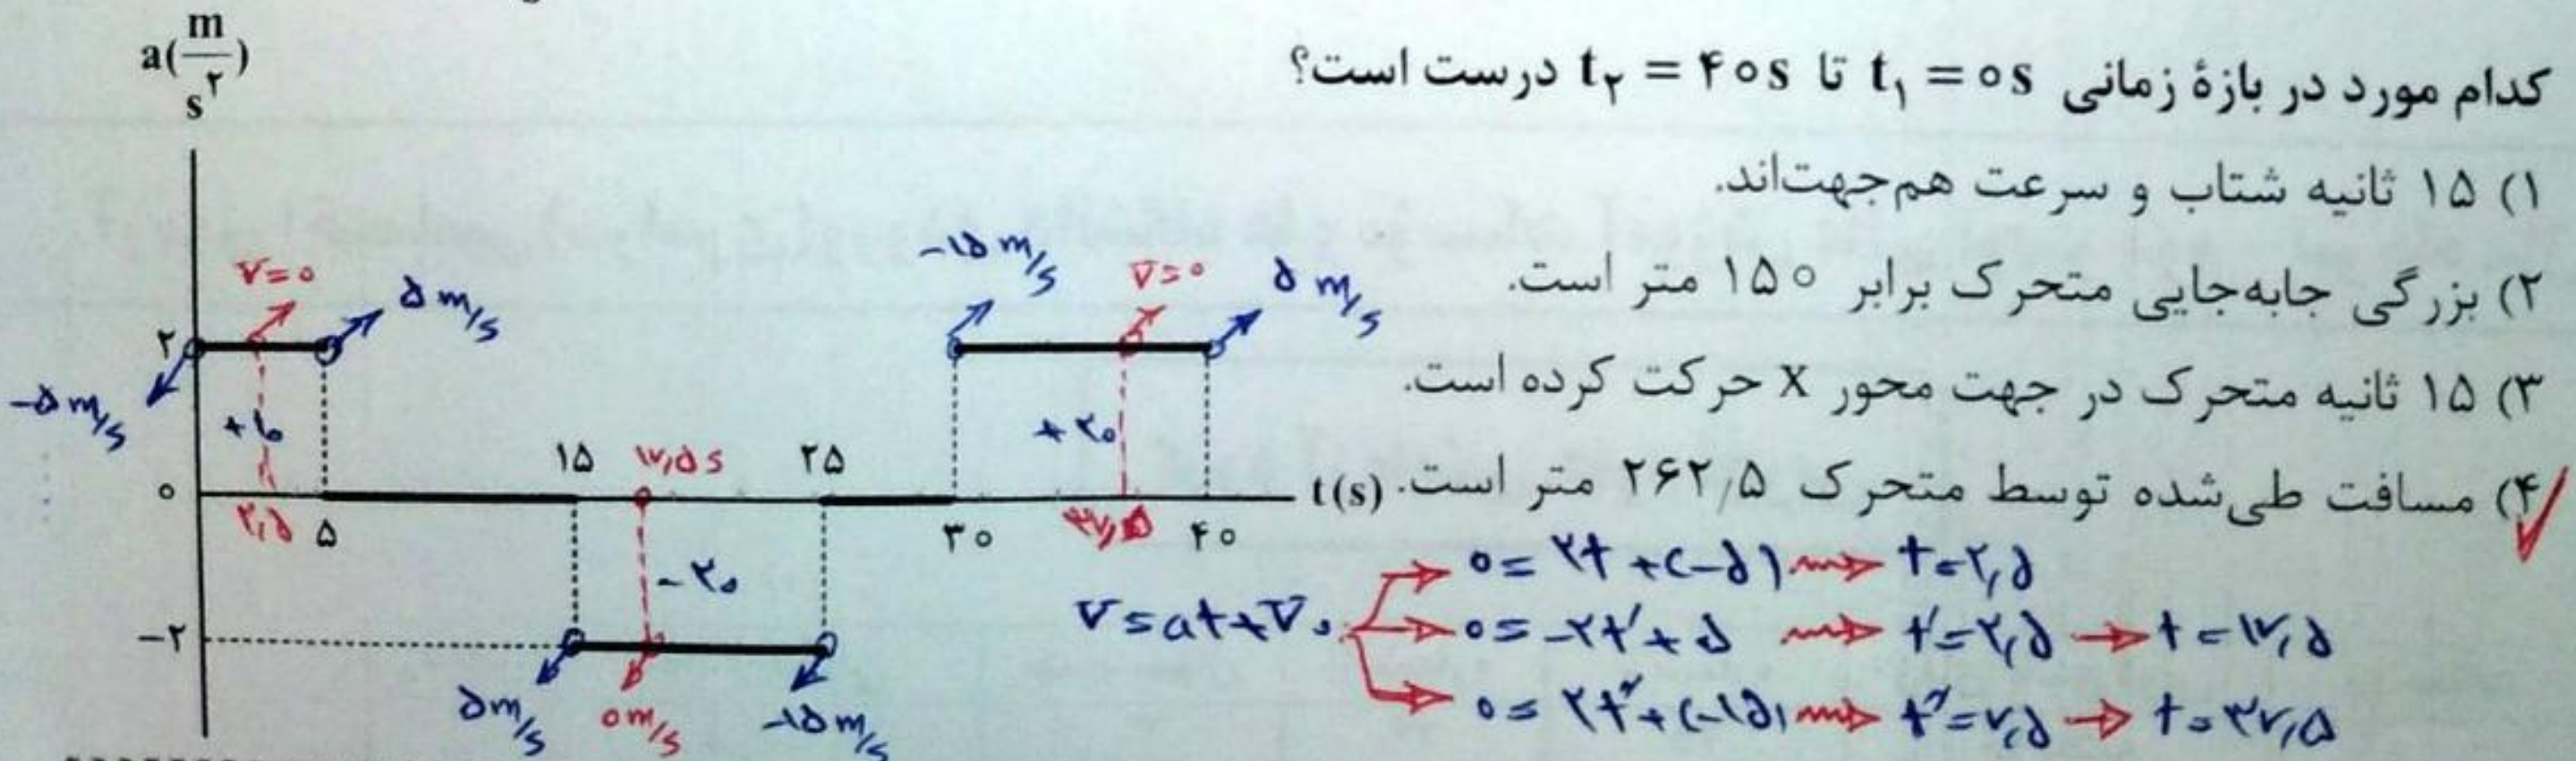 کدام مورد در بازهٔ زمانی t₁ = ۰s تا t₂ = ۴۰s درست است؟
۱) ۱۵ ثانیه شتاب و سرعت هم‌جهت‌اند.
۲) بزرگی جابه‌جایی متحرک برابر ۱۵۰ متر است.
۳) ۱۵ ثانیه متحرک در جهت محور x حرکت کرده است.
۴) مسافت طی‌شده توسط متحرک ۲۶۲٫۵ متر است.
a(m/s۲)
v=۰ ۵ m/s -۱۵ m/s v=۰ ۵ m/s
۲
-۵ m/s +۱۰ +۲۰
۱۵ ۱۷٫۵ s ۲۵
۰ t(s)
۲٫۵ ۵ ۳۰ ۳۷٫۵ ۴۰
-۲۰
-۲
۵ m/s ۰ m/s -۱۵ m/s
۰ = ۲t + (-۵) → t = ۲٫۵
v = at + v₀ → ۰ = -۲t' + ۵ → t' = ۲٫۵ → t = ۱۷٫۵
۰ = ۲t" + (-۱۵) → t" = ۷٫۵ → t = ۳۷٫۵